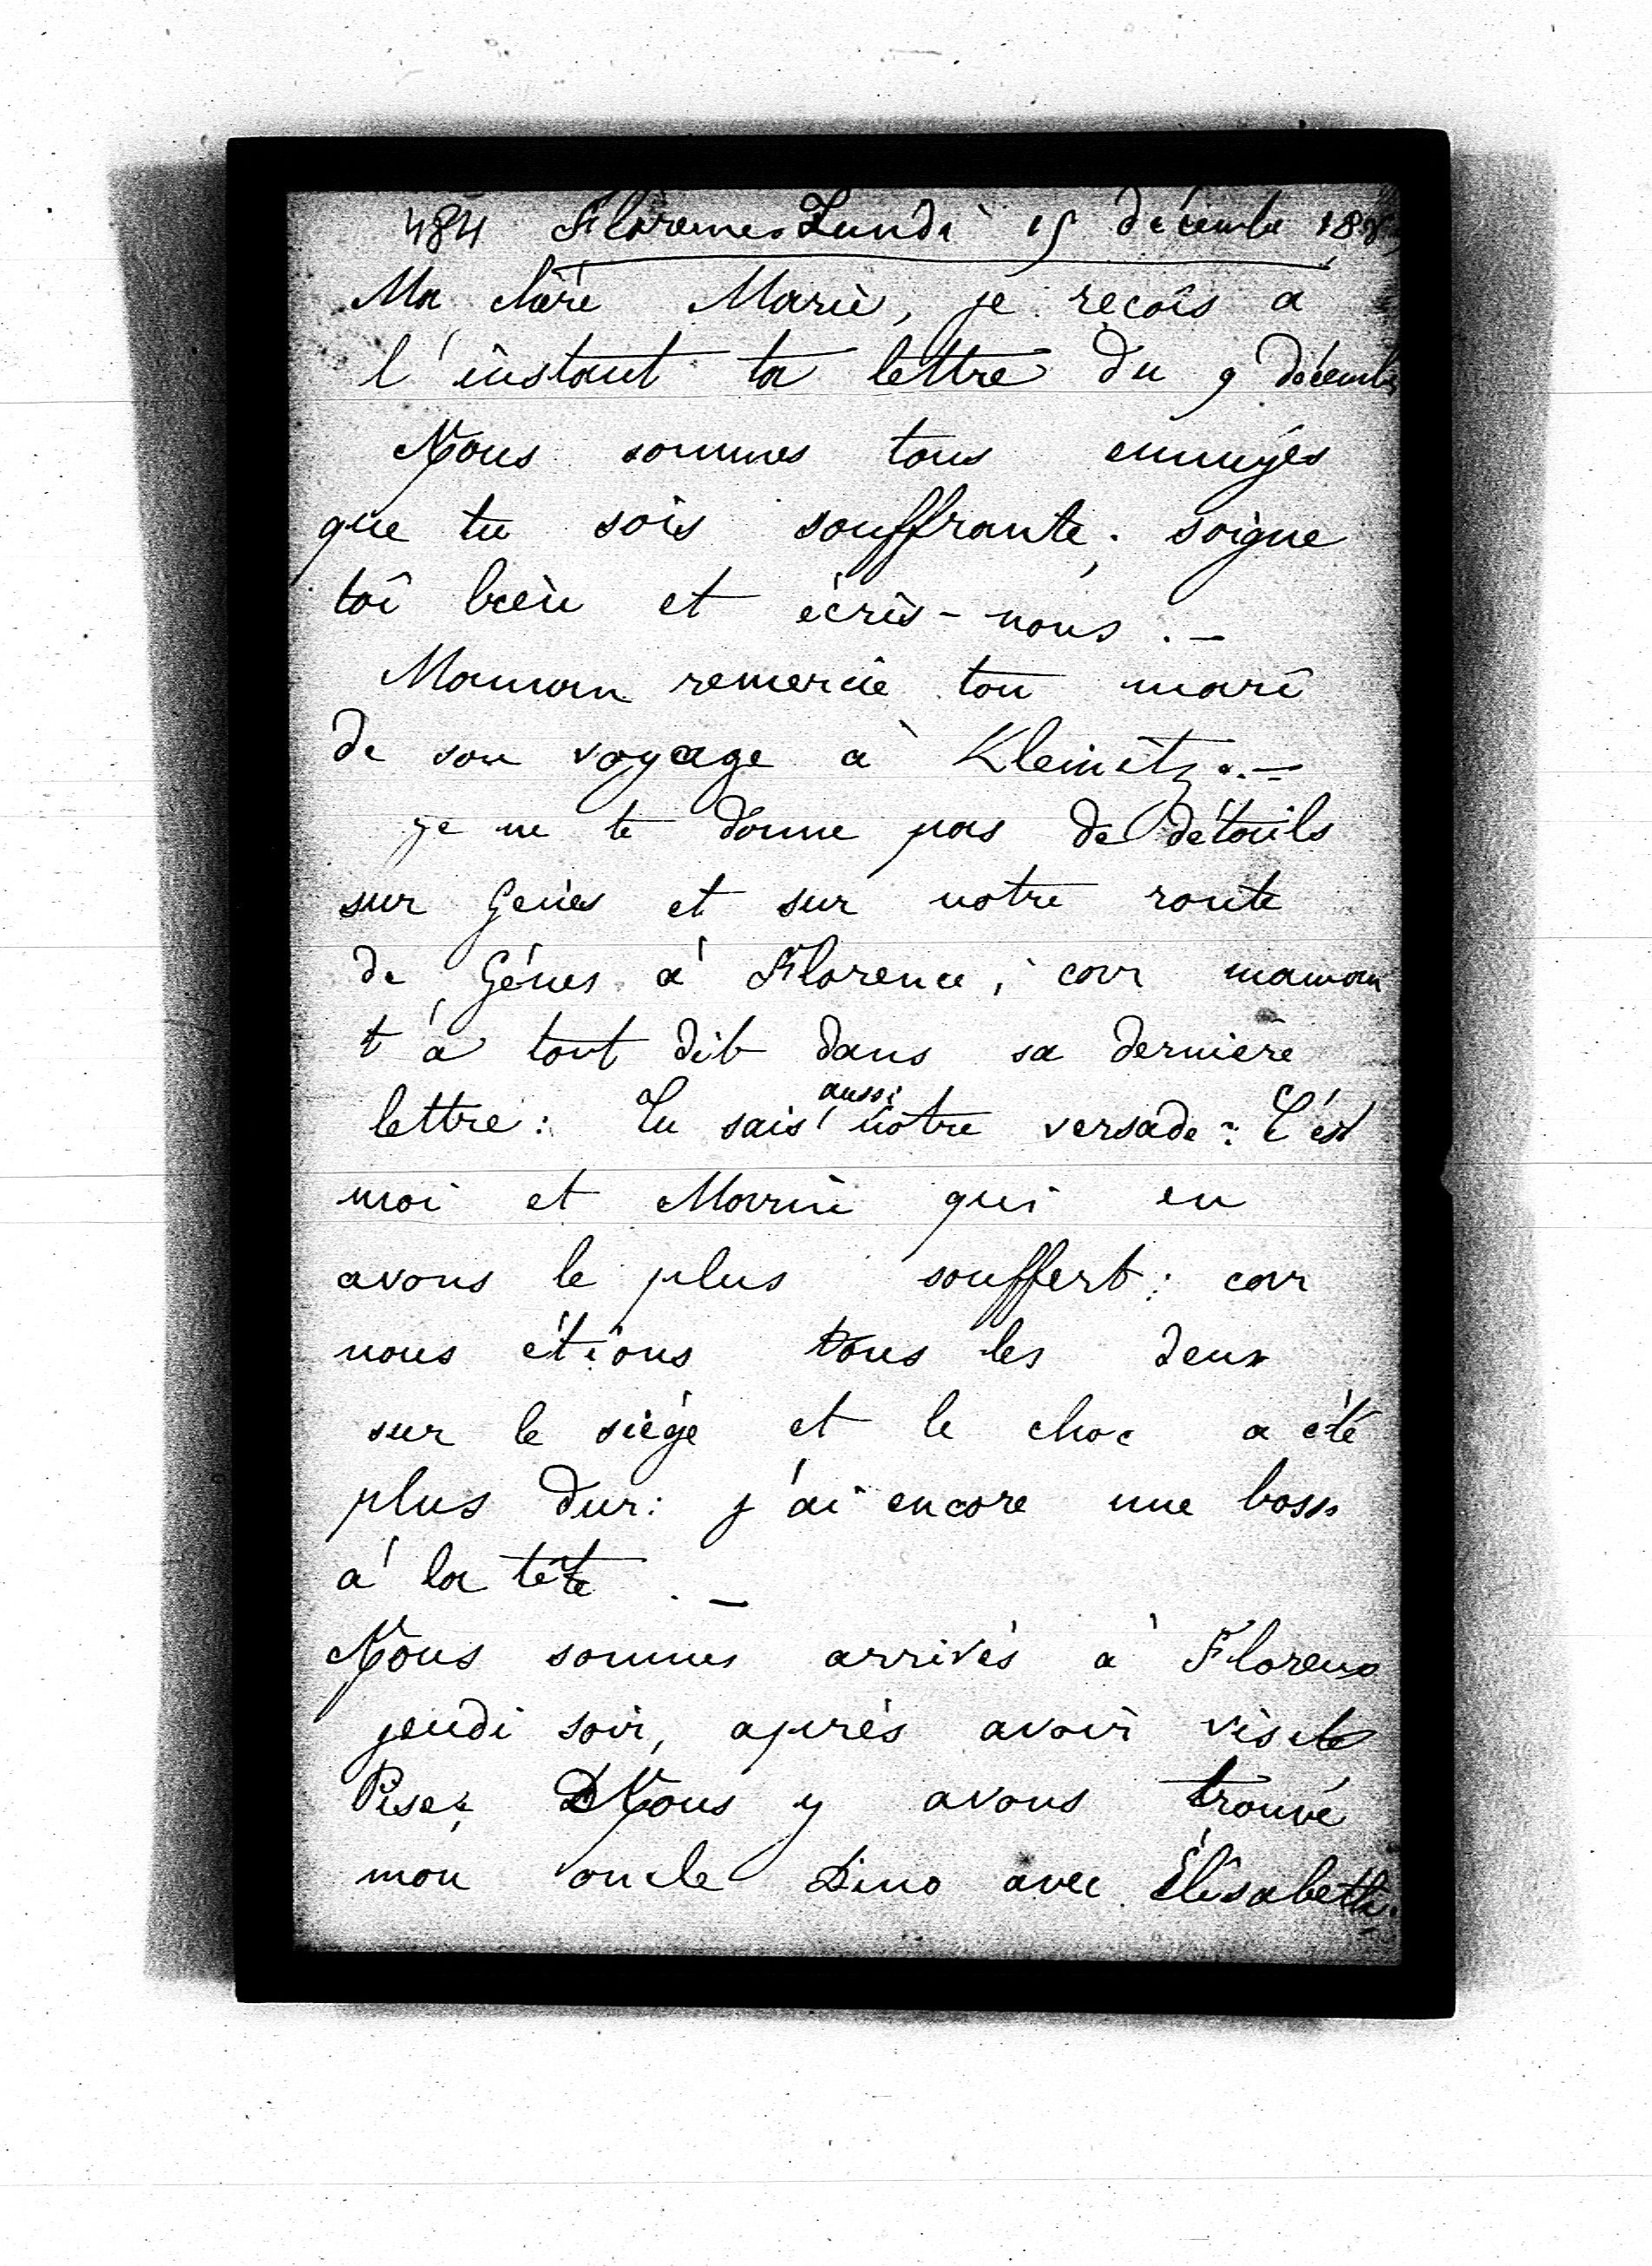 484 Florence Lundi 15 décembre
Ma chère Marie, je reçois a
l'instant ta lettre du 9 décembre
Nous sommes tous ennuyés
que tu sois souffrante ; soigne
toi bien et écris-nous . –
Maman remercie ton mari
de son voyage à Kleinitz . –
je ne te donne pas de détails
sur Genès et sur notre route
de Génes à Florence ; car maman
t'a tout dit dans sa dernière
lettre : Tu sais aussi notre versade : C'est
moi et qui en
avons le plus souffert : car
nous étions tous les deux
sur le siège et le choc a été
plus dur : j'ai encore une bosse
à la tête . –
Nous sommes arrivés à Florence
jeudi soir, après avoir visité
Pise ; Nous y avons trouvé
mon oncle Dino avec Élisabeth.